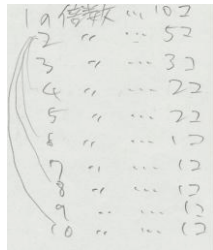 1の倍数 … 10コ
2 〃 … 5コ
3 〃 … 3コ
4 〃 … 2コ
5 〃 … 2コ
6 〃 … 1コ
7 〃 … 1コ
8 〃 … 1コ
9 〃 … 1コ
10 〃 … 1コ